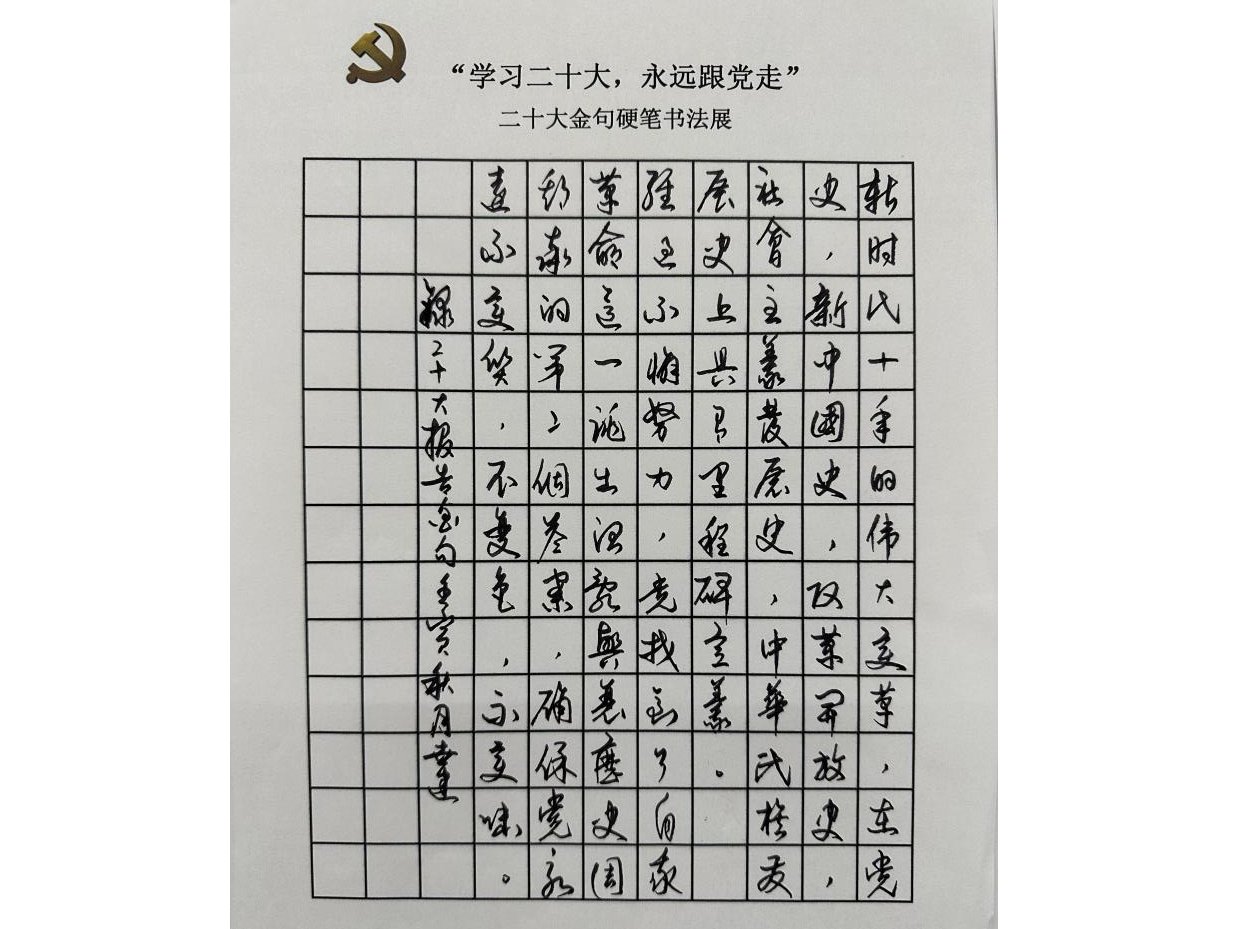 “学习二十大，永远跟党走”
二十大金句硬笔书法展
新时代十年的伟大变革，在党
史，新中國史，改革開放史，
社會主義發展史，中華民族發
展史上具有里程碑意義。
經過不懈努力，党找到了自我
革命這一跳出治亂興衰歷史周
期率的第二個答案，确保党永
遠不变質，不變色，不变味。
録二十大报告金句壬寅秋月